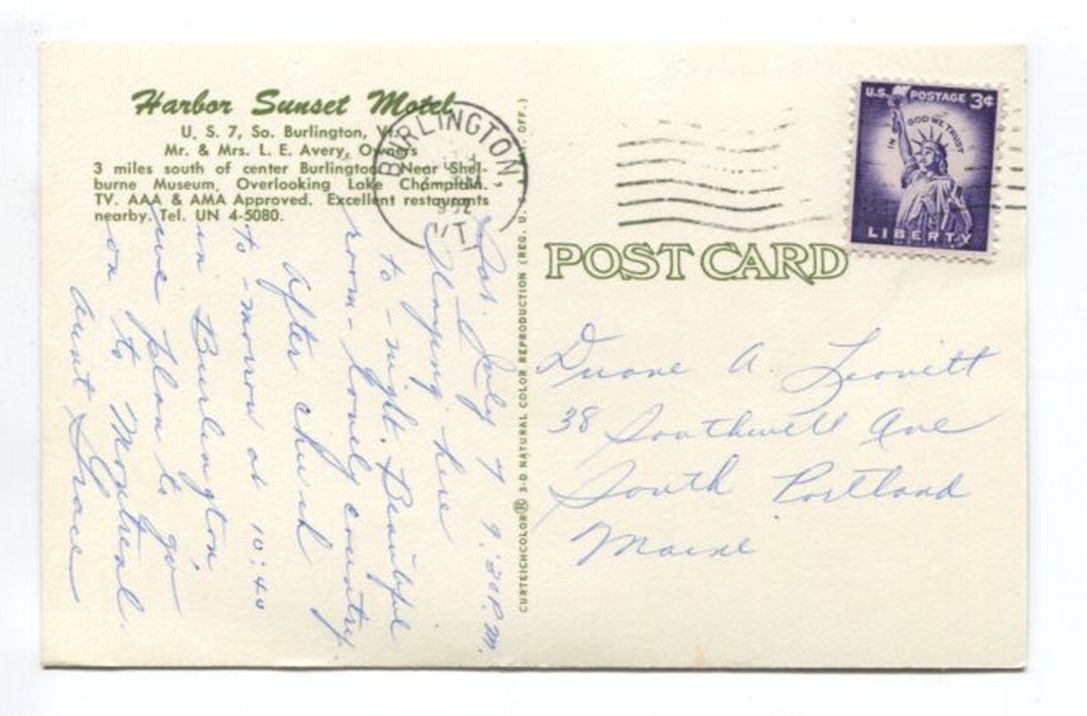 Harbor Sunset Motel
U. S. 7, So. Burlington, Vt.
Mr. & Mrs. L. E. Avery, Owners
3 miles south of center Burlington. Near Shel-
burne Museum, Overlooking Lake Champlain.
TV. AAA & AMA Approved. Excellent restaurants
nearby. Tel. UN 4-5080.
BURLINGTON,
VT.
U.S. POSTAGE 3¢
IN GOD WE TRUST
LIBERTY
POST CARD
CURTEICHCOLOR® 3-D NATURAL COLOR REPRODUCTION (REG. U. S. OFF.)
Sat. July 7 9:30 P.M.
Staying here
to-night. Beautiful
room - lovely country.
After church
to-morrow at 10:40
in Burlington,
we plan to go
on to Montreal.
Aunt Grace
Duane A. Leavitt
38 Southwell Ave
South Portland
Maine